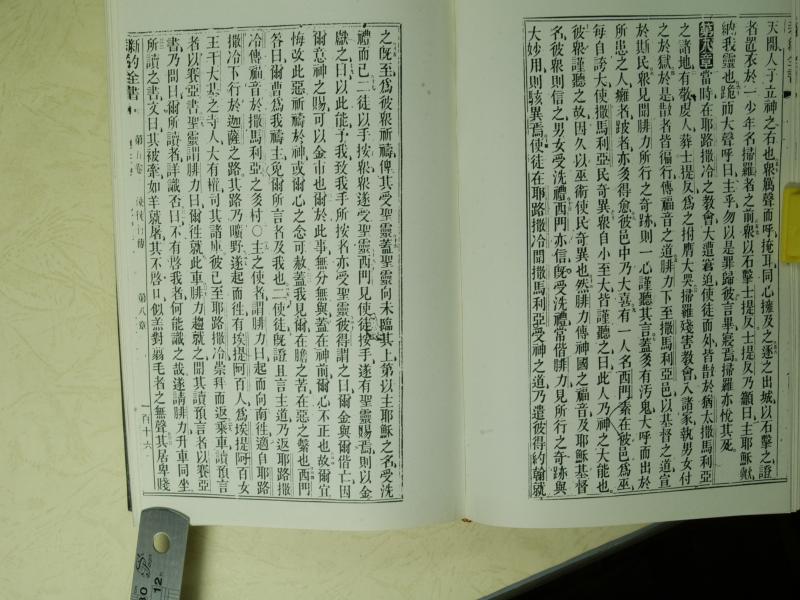 天開人子立神之右也衆厲聲而呼掩耳同心擁及之逐之出城以石擊之證
者置衣於一少年名掃羅者之前衆以石擊士提反士提反乃籲曰主耶穌歟
納我靈也跪而大聲呼曰主乎勿以是罪歸彼言畢寢焉掃羅亦悅其死
第八章當時在耶路撒冷之教會大遭窘迫使徒而外皆散於猶太撒馬利亞
之諸地有敬虔人葬士提反爲之拊膺大哭掃羅殘害教會入諸家執男女付
之於獄於是散者皆徧行傳福音之道腓力下至撒馬利亞邑以基督之道宣
於斯民衆見聞腓力所行之奇跡則一心謹聽其言蓋多有汚鬼大呼而出於
所患之人癱者跛者亦多得愈彼邑中乃大喜有一人名西門素在彼邑爲巫
每自誇大使撒馬利亞民奇異衆自小至大皆謹聽之曰此人乃神之大能也
彼衆謹聽之故因久以巫術使民奇異也然腓力傳神國之福音及耶穌基督
名彼衆則信之男女受洗禮西門亦信既受洗禮常偕腓力見所行之奇跡與
大妙用則駭異焉使徒在耶路撒冷聞撒馬利亞受神之道乃遣彼得約翰就
之既至爲彼衆祈禱俾其受聖靈蓋聖靈向未臨其上第以主耶穌之名受洗
禮而已二徒以手按衆衆遂受聖靈西門見使徒按手遂有聖靈賜焉則以金
獻之曰以此能予我致我手所按者亦受聖靈彼得謂之曰爾金與爾偕亡因
爾意神之賜可以金市也爾於此事無分無與蓋在神前爾心不正也故爾宜
悔改此惡祈禱於神或爾心之念可赦蓋我見爾在膽之苦在惡之繫也西門
答曰爾曹爲我禱主免爾所言者及我也二使徒既證且言主道乃返耶路撒
冷傳福音於撒馬利亞之多村○主之使者謂腓力曰起而向南往適自耶路
撒冷下行於迦薩之路其路乃曠野遂起而往有埃提阿百人爲埃提阿百女
王干大基之寺人大有權司其諸庫彼已至耶路撒冷崇拜而返乘車讀預言
者以賽亞書聖靈謂腓力曰爾往就此車腓力趨就之聞其讀預言者以賽亞
書乃問曰爾所讀者詳識否曰不有啓我者何能識之哉遂請腓力升車同坐
所讀之書文曰其被牽如羊就屠其不啓口似羔對翦毛者之無聲其居卑賤
新約全書
第五卷
使徒行傳
第八章
一百十六